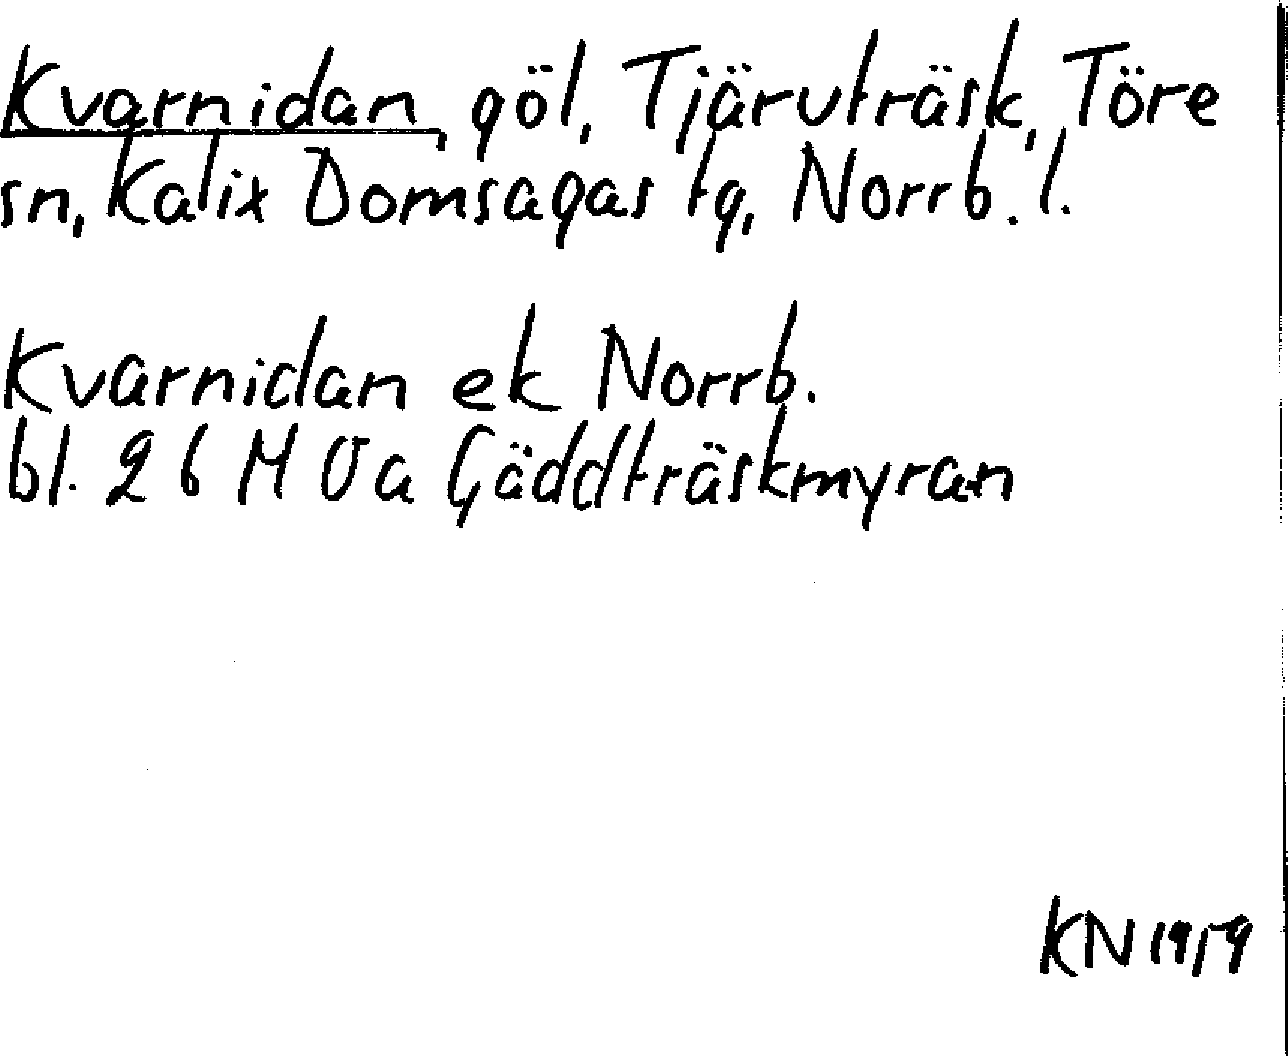 Kvarnidan, göl, Tjärutträsk, Töre
sn, Kalix Domsagas tg, Norrb. l.
Kvarnidan ek Norrb.
bl. 26 M Va Gäddträskmyran
KN 1959